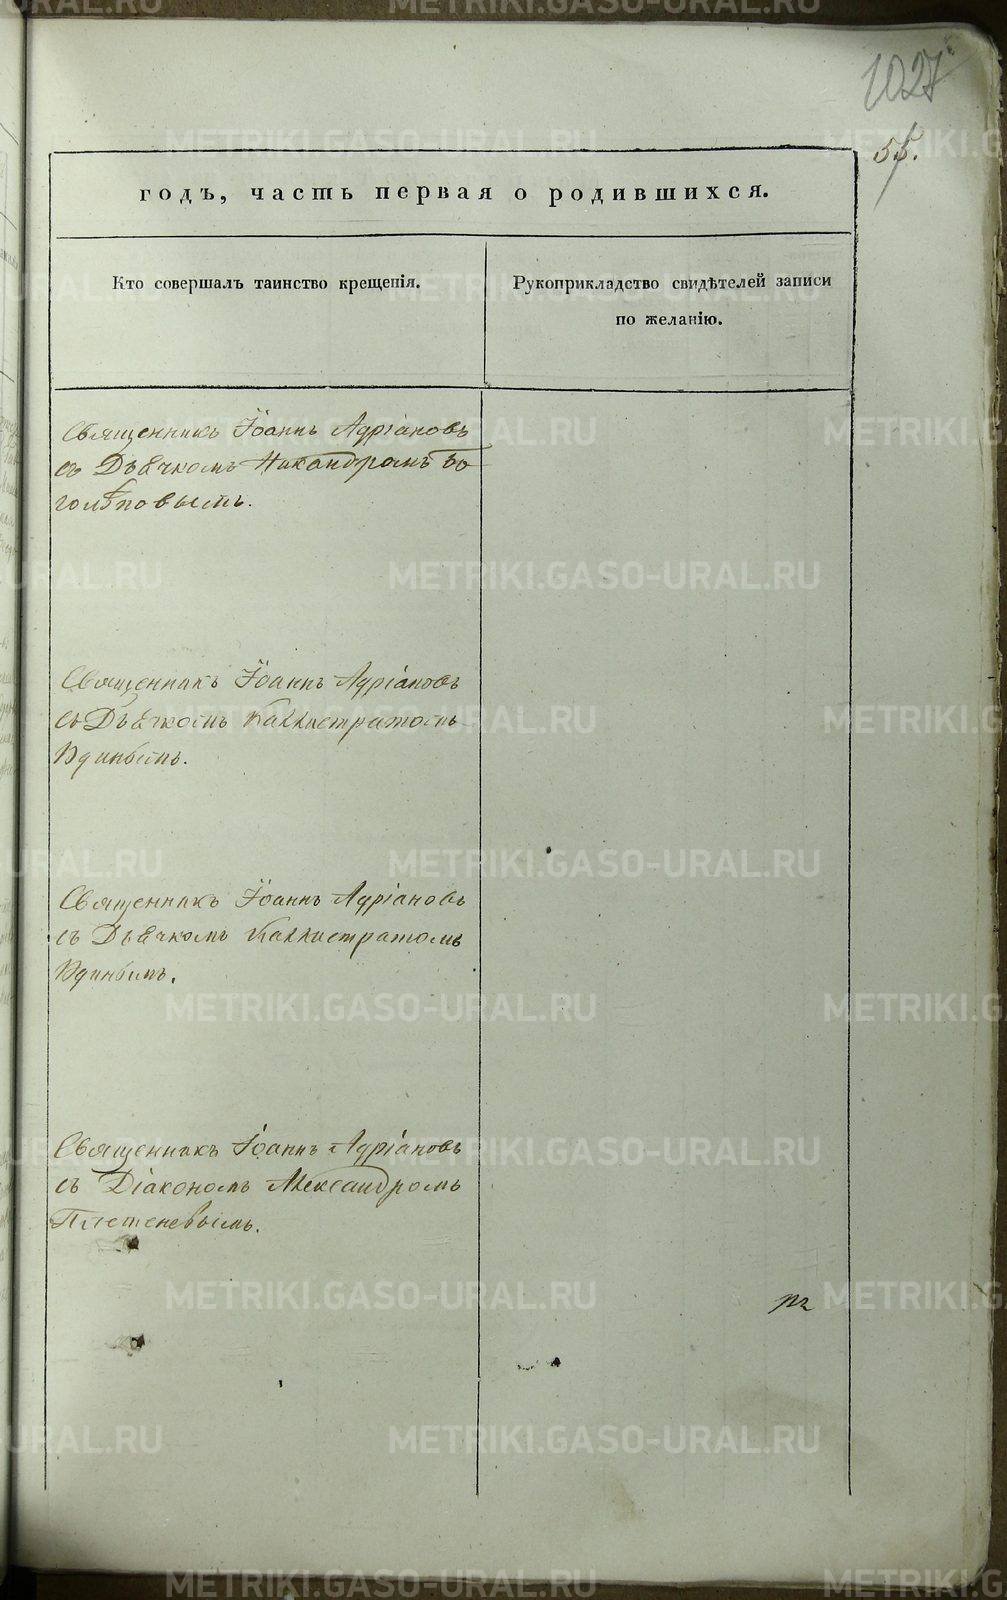 1027
55.
годъ, часть первая о родившихся.
Кто совершалъ таинство крещенія.
Рукоприкладство свидѣтелей записи
по желанію.
Священникъ Іоаннъ Адріановъ
съ Дьячкомъ Никандромъ Бо
голѣповымъ.
Священникъ Іоаннъ Адріановъ
съ Дьячкомъ Каллистратомъ
Удинымъ.
Священникъ Іоаннъ Адріановъ
съ Дьячкомъ Каллистратомъ
Удинымъ.
Священникъ Іоаннъ Адріановъ
съ Діакономъ Александромъ
Плетеневымъ.
METRIKI.GASO-URAL.RU